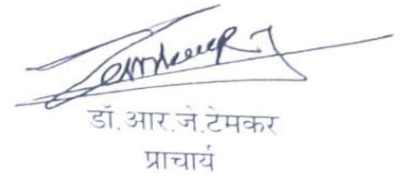 डॉ.आर.जे.टेमकर
प्राचार्य